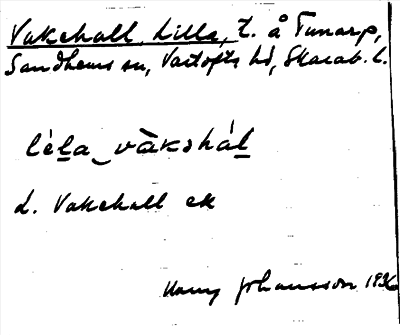 Vakehall, Lilla, t. å Tunarp,
Sandhems sn, Vartofts hd, Skarab. l.
lèla vàkshál
d. Vakehall ek
Harry Johansson 1936